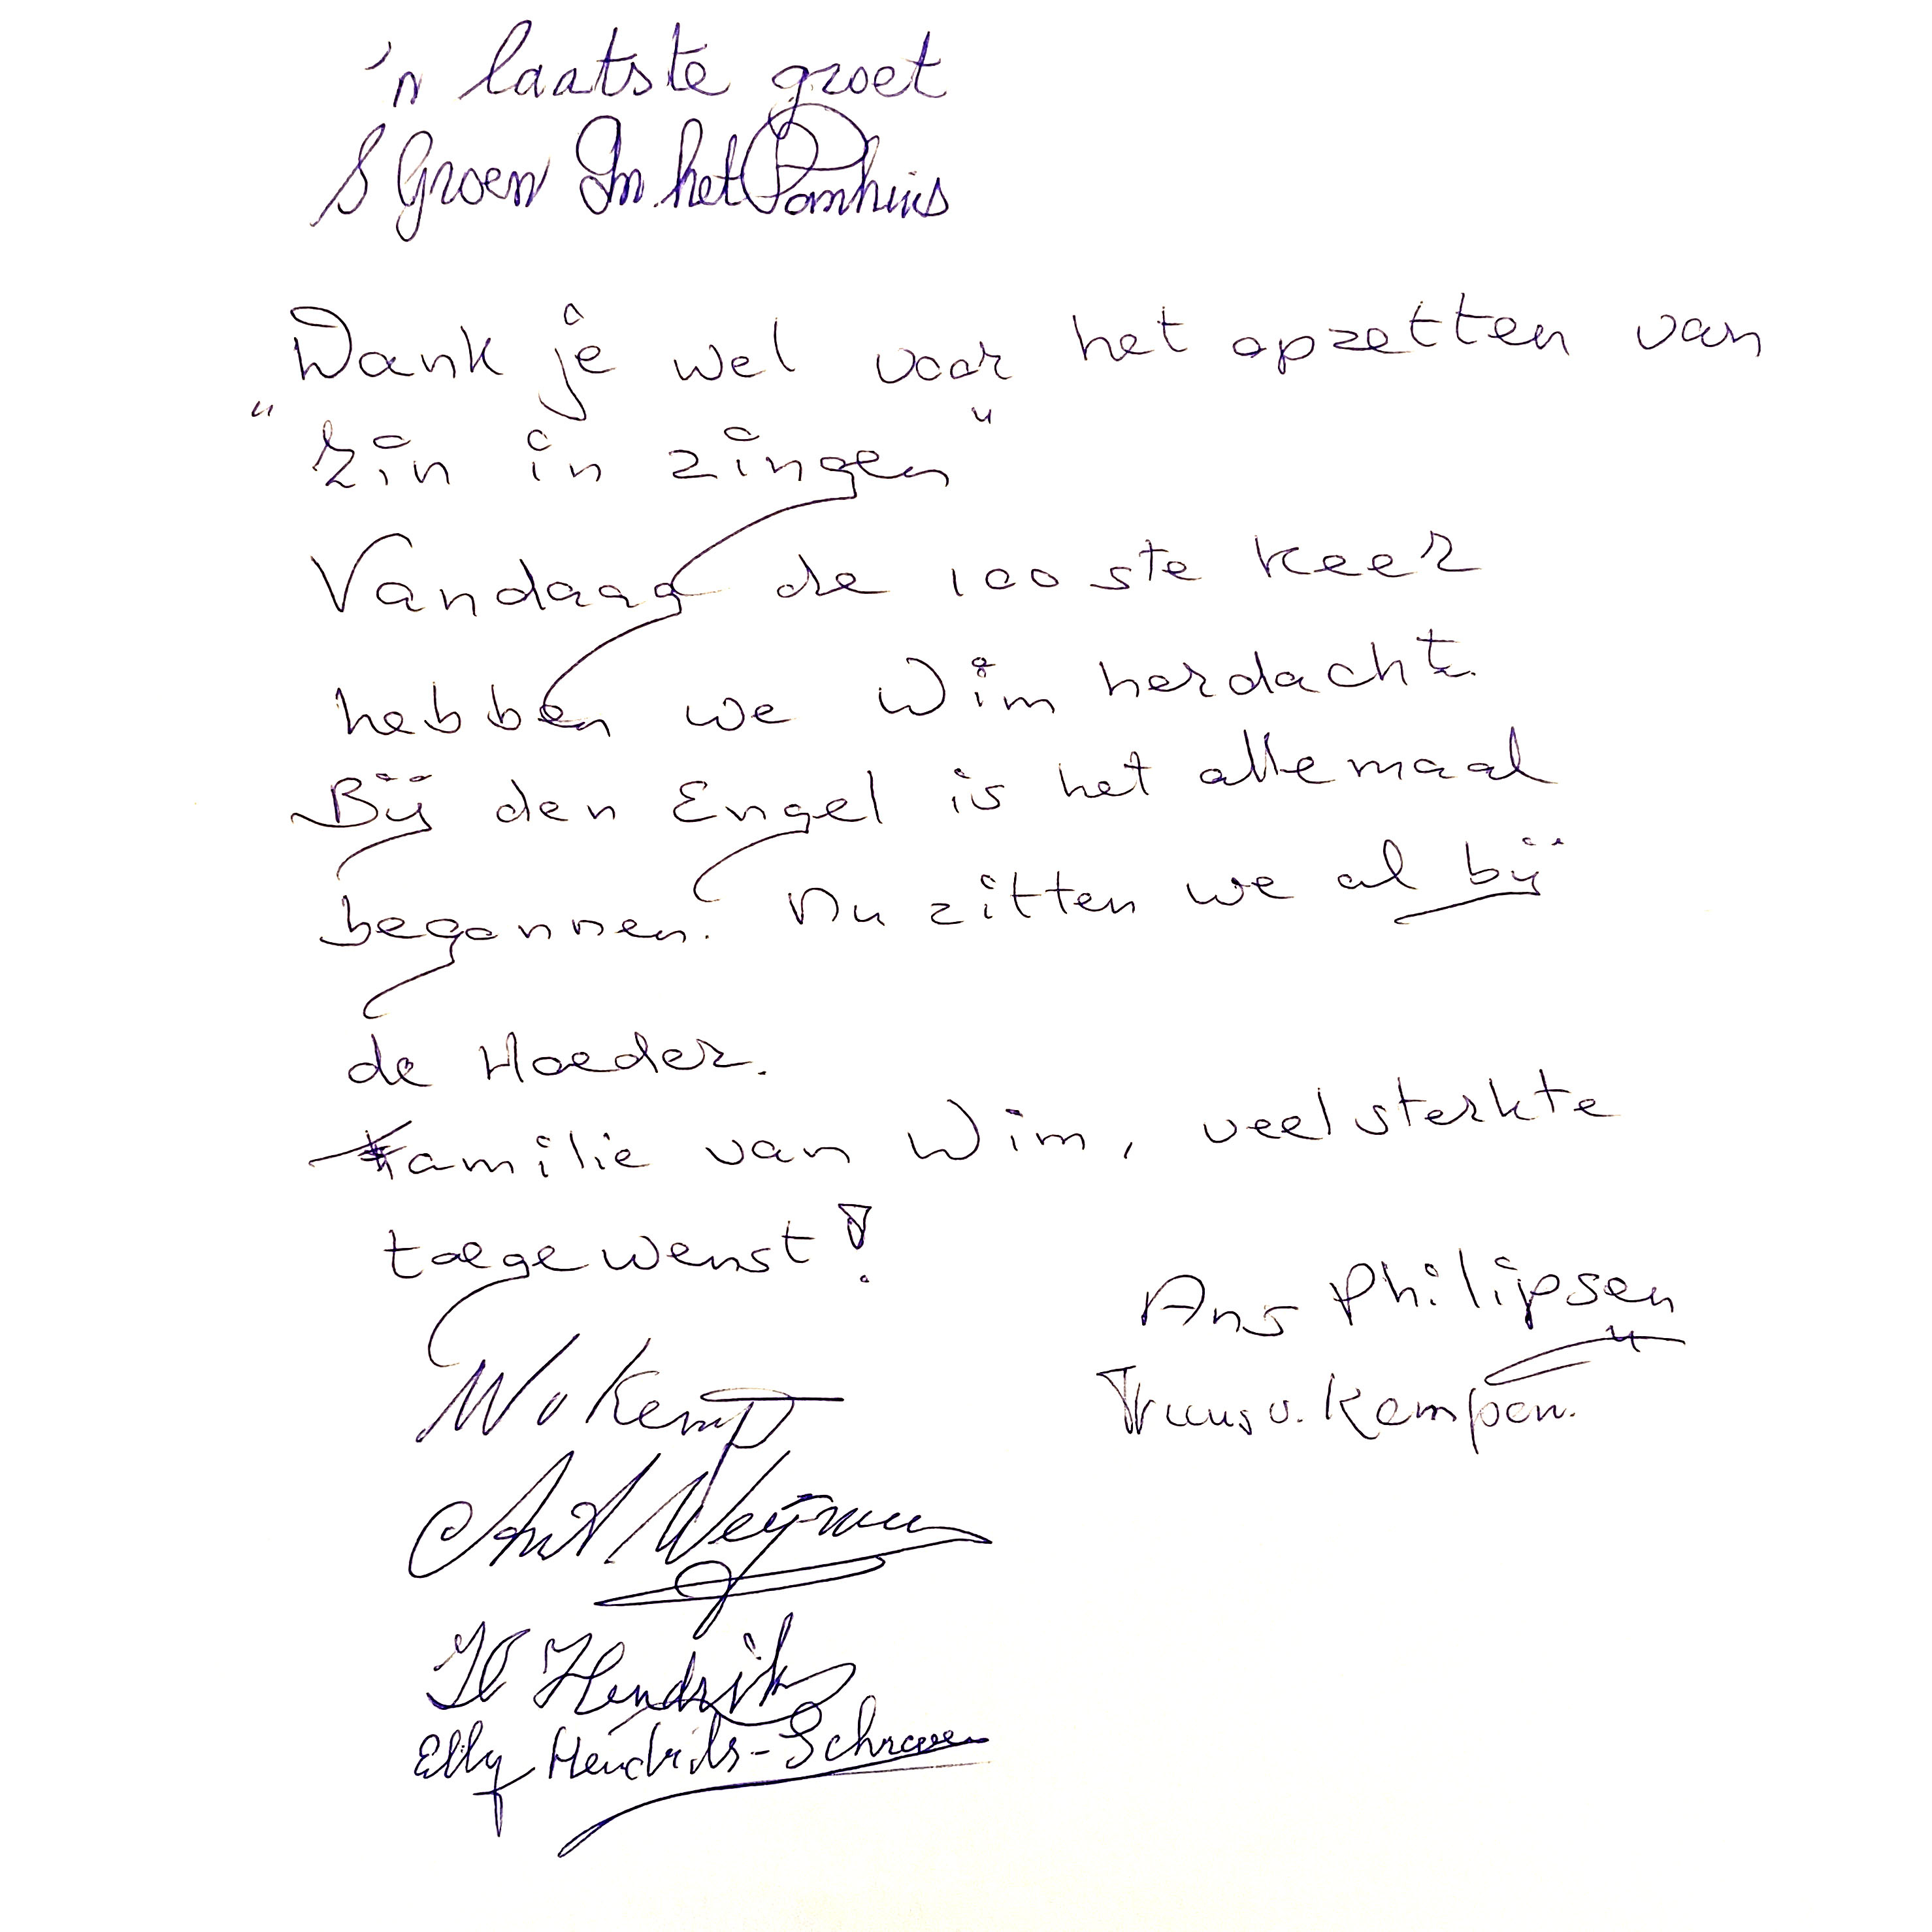 'n laatste groet
S Groen In het Pomhuis
Dank je wel voor het opzetten van
"Zin in zingen"
Vandaag de 100 ste keer
hebben we Wim herdacht.
Bij den Engel is het allemaal
begonnen. Nu zitten we al bij
de Hoeder.
Familie van Wim, veel sterkte
toegewenst!
Ans Philipsen
W v Kemp
Truus v. Kempen.
Hendrik
Elly Hendriks-